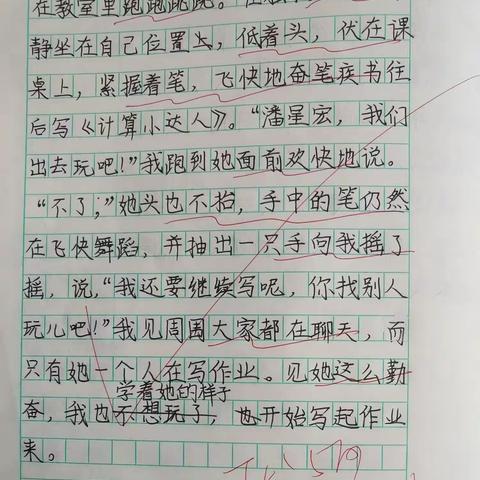 在教室里跑跑跳跳。
静坐在自己位置上，低着头，伏在课
桌上，紧握着笔，飞快地奋笔疾书往
后写《计算小达人》。“潘星宏，我们
出去玩吧！”我跑到她面前欢快地说。
“不了，”她头也不抬，手中的笔仍然
在飞快舞蹈，并抽出一只手向我摇了
摇，说，“我还要继续写呢，你找别人
玩儿吧！”我见周围大家都在聊天，而
只有她一个人在写作业。见她这么勤
学着她的样子
奋，我也不想玩了，也开始写起作业
来。